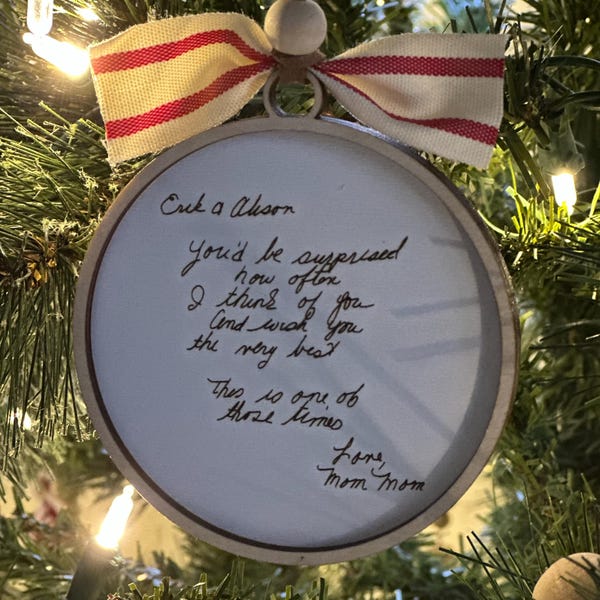 Erik & Alison
You'd be surprised
how often
I think of you
And wish you
the very best
This is one of
those times
Love,
Mom Mom